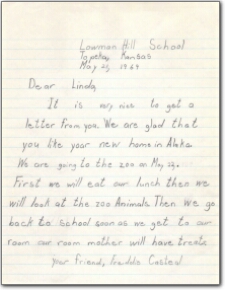 Lowman Hill School
Topeka, Kansas
May 23, 1964
Dear Linda,
It is very nice to get a
letter from you. We are glad that
you like your new home in Alaska.
We are going to the zoo on May 29.
First we will eat our lunch then we
will look at the zoo Animals. Then We go
back to school soon as we get to our
room our room mother will have treats
your friend, Freddie